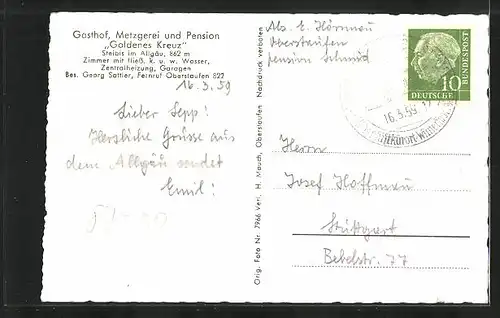 Gasthof, Metzgerei und Pension
„Goldenes Kreuz"
Steibis im Allgäu, 862 m
Zimmer mit fließ. k. u. w. Wasser,
Zentralheizung, Garagen
Bes. Georg Sattler, Fernruf Oberstaufen 822
16.3.59
Lieber Sepp!
Herzliche Grüsse aus
dem Allgäu sendet
Emil!
Orig. Foto Nr. 7966 Verl. H. Mauch, Oberstaufen Nachdruck verboten
Abs. E. Hörmau
Oberstaufen
pension Schmid
10
DEUTSCHE
BUNDESPOST
16.3.59
Herrn
Josef Hoffmau
Stuttgart
Bebelstr. 77